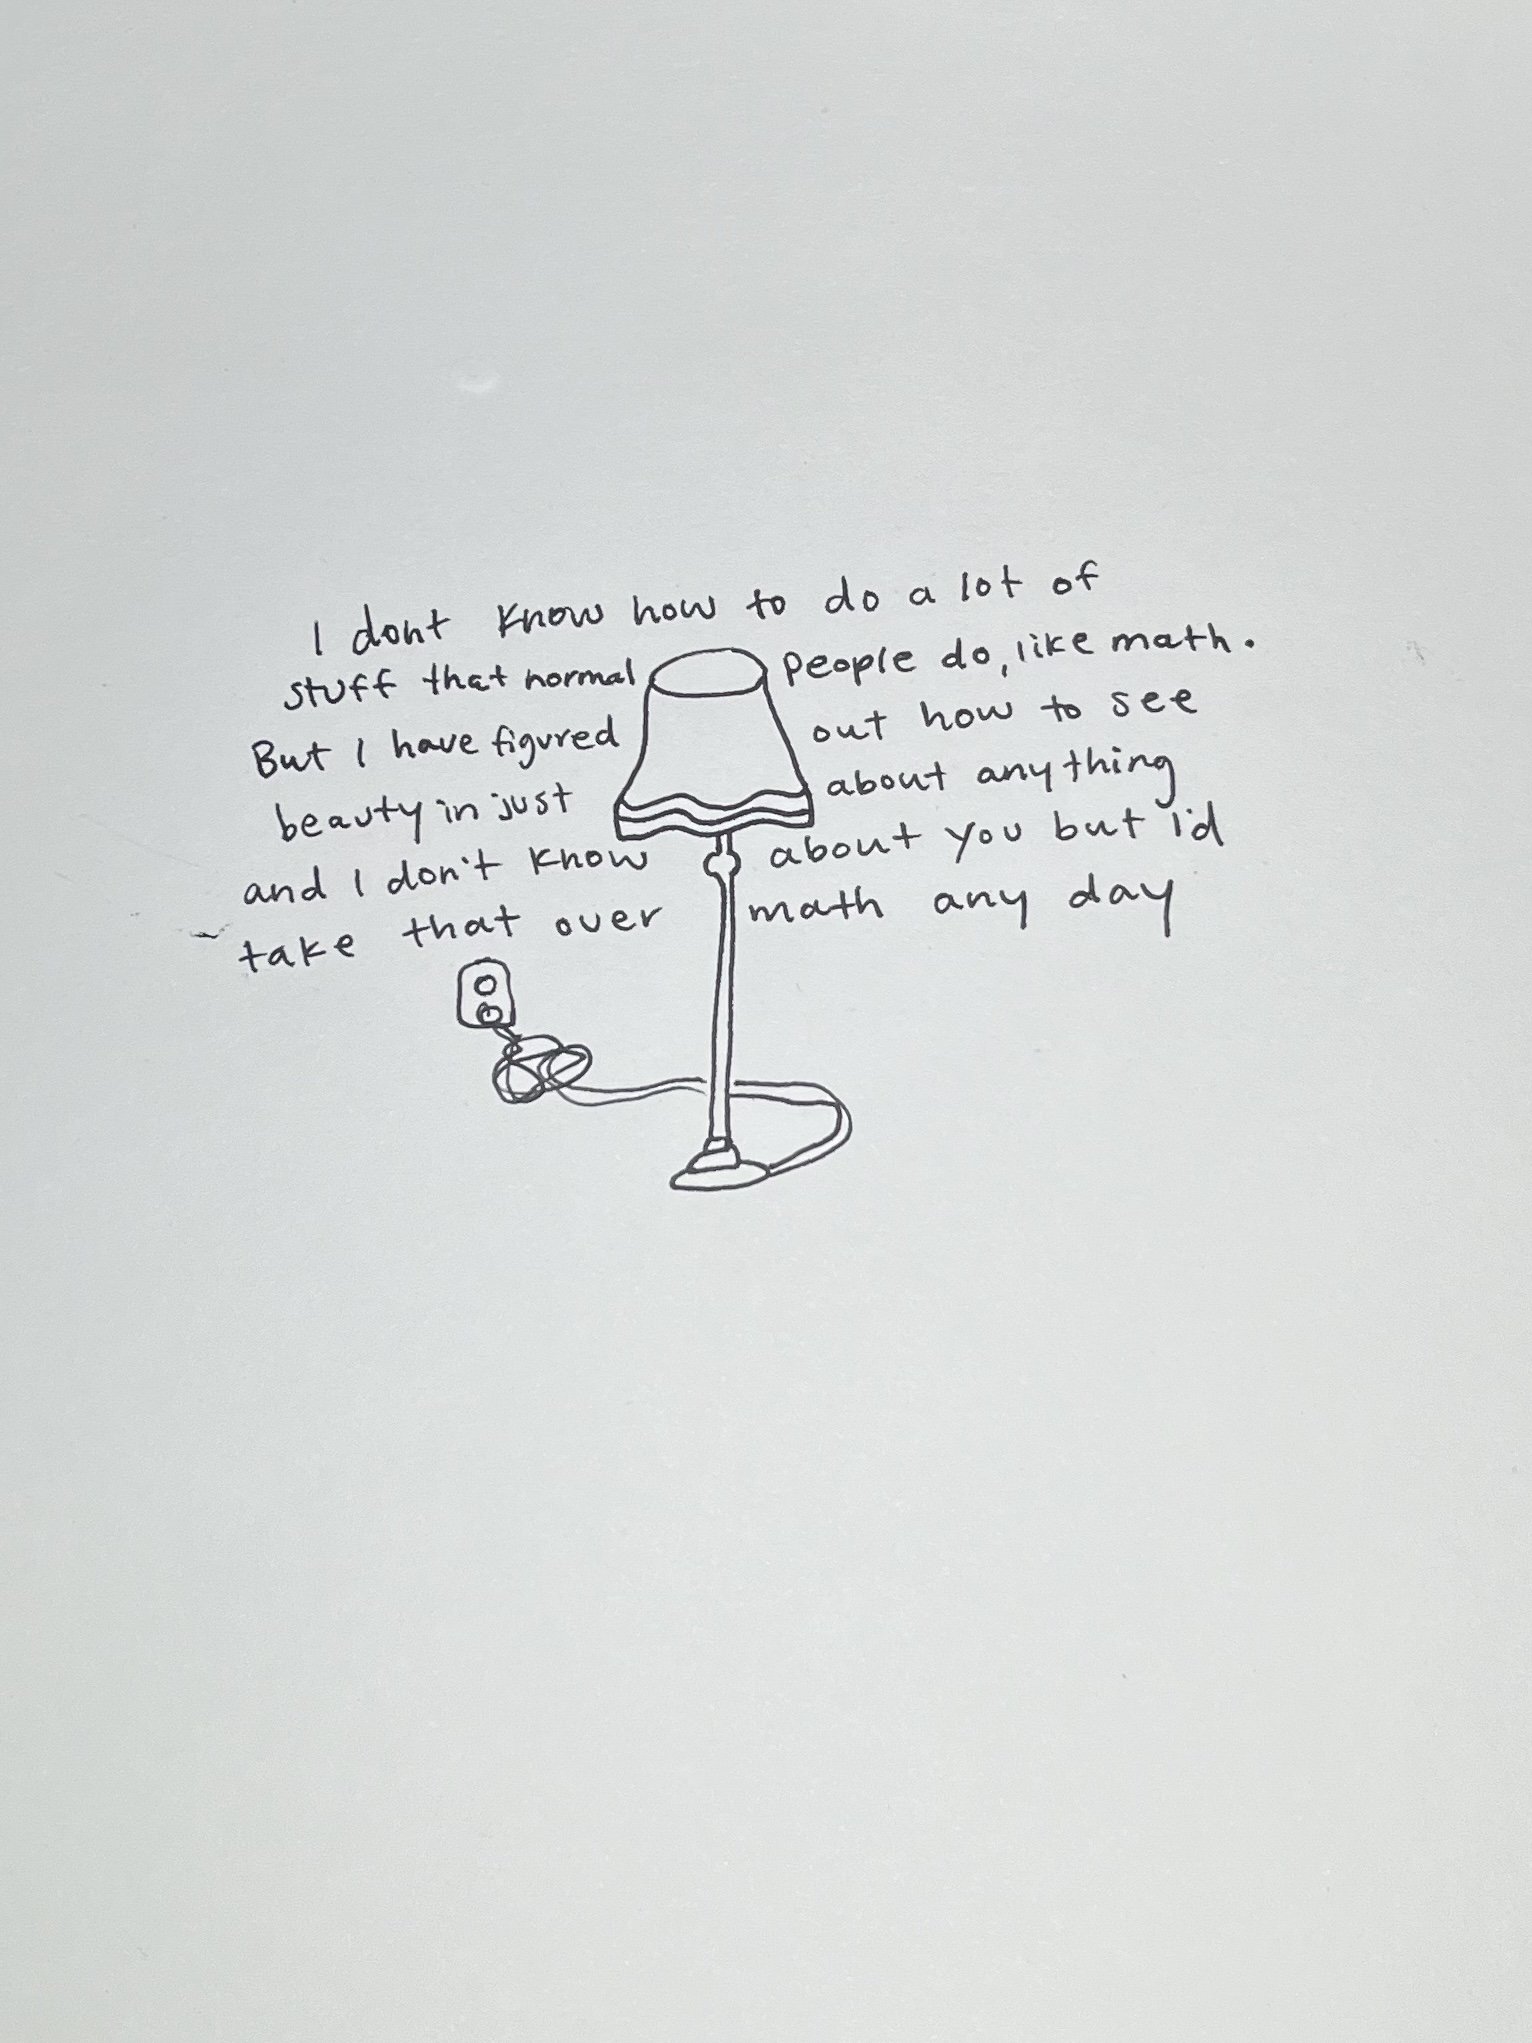 I dont know how to do a lot of
stuff that normal people do, like math.
But I have figured out how to see
beauty in just about anything
and I don't know about you but i'd
take that over math any day